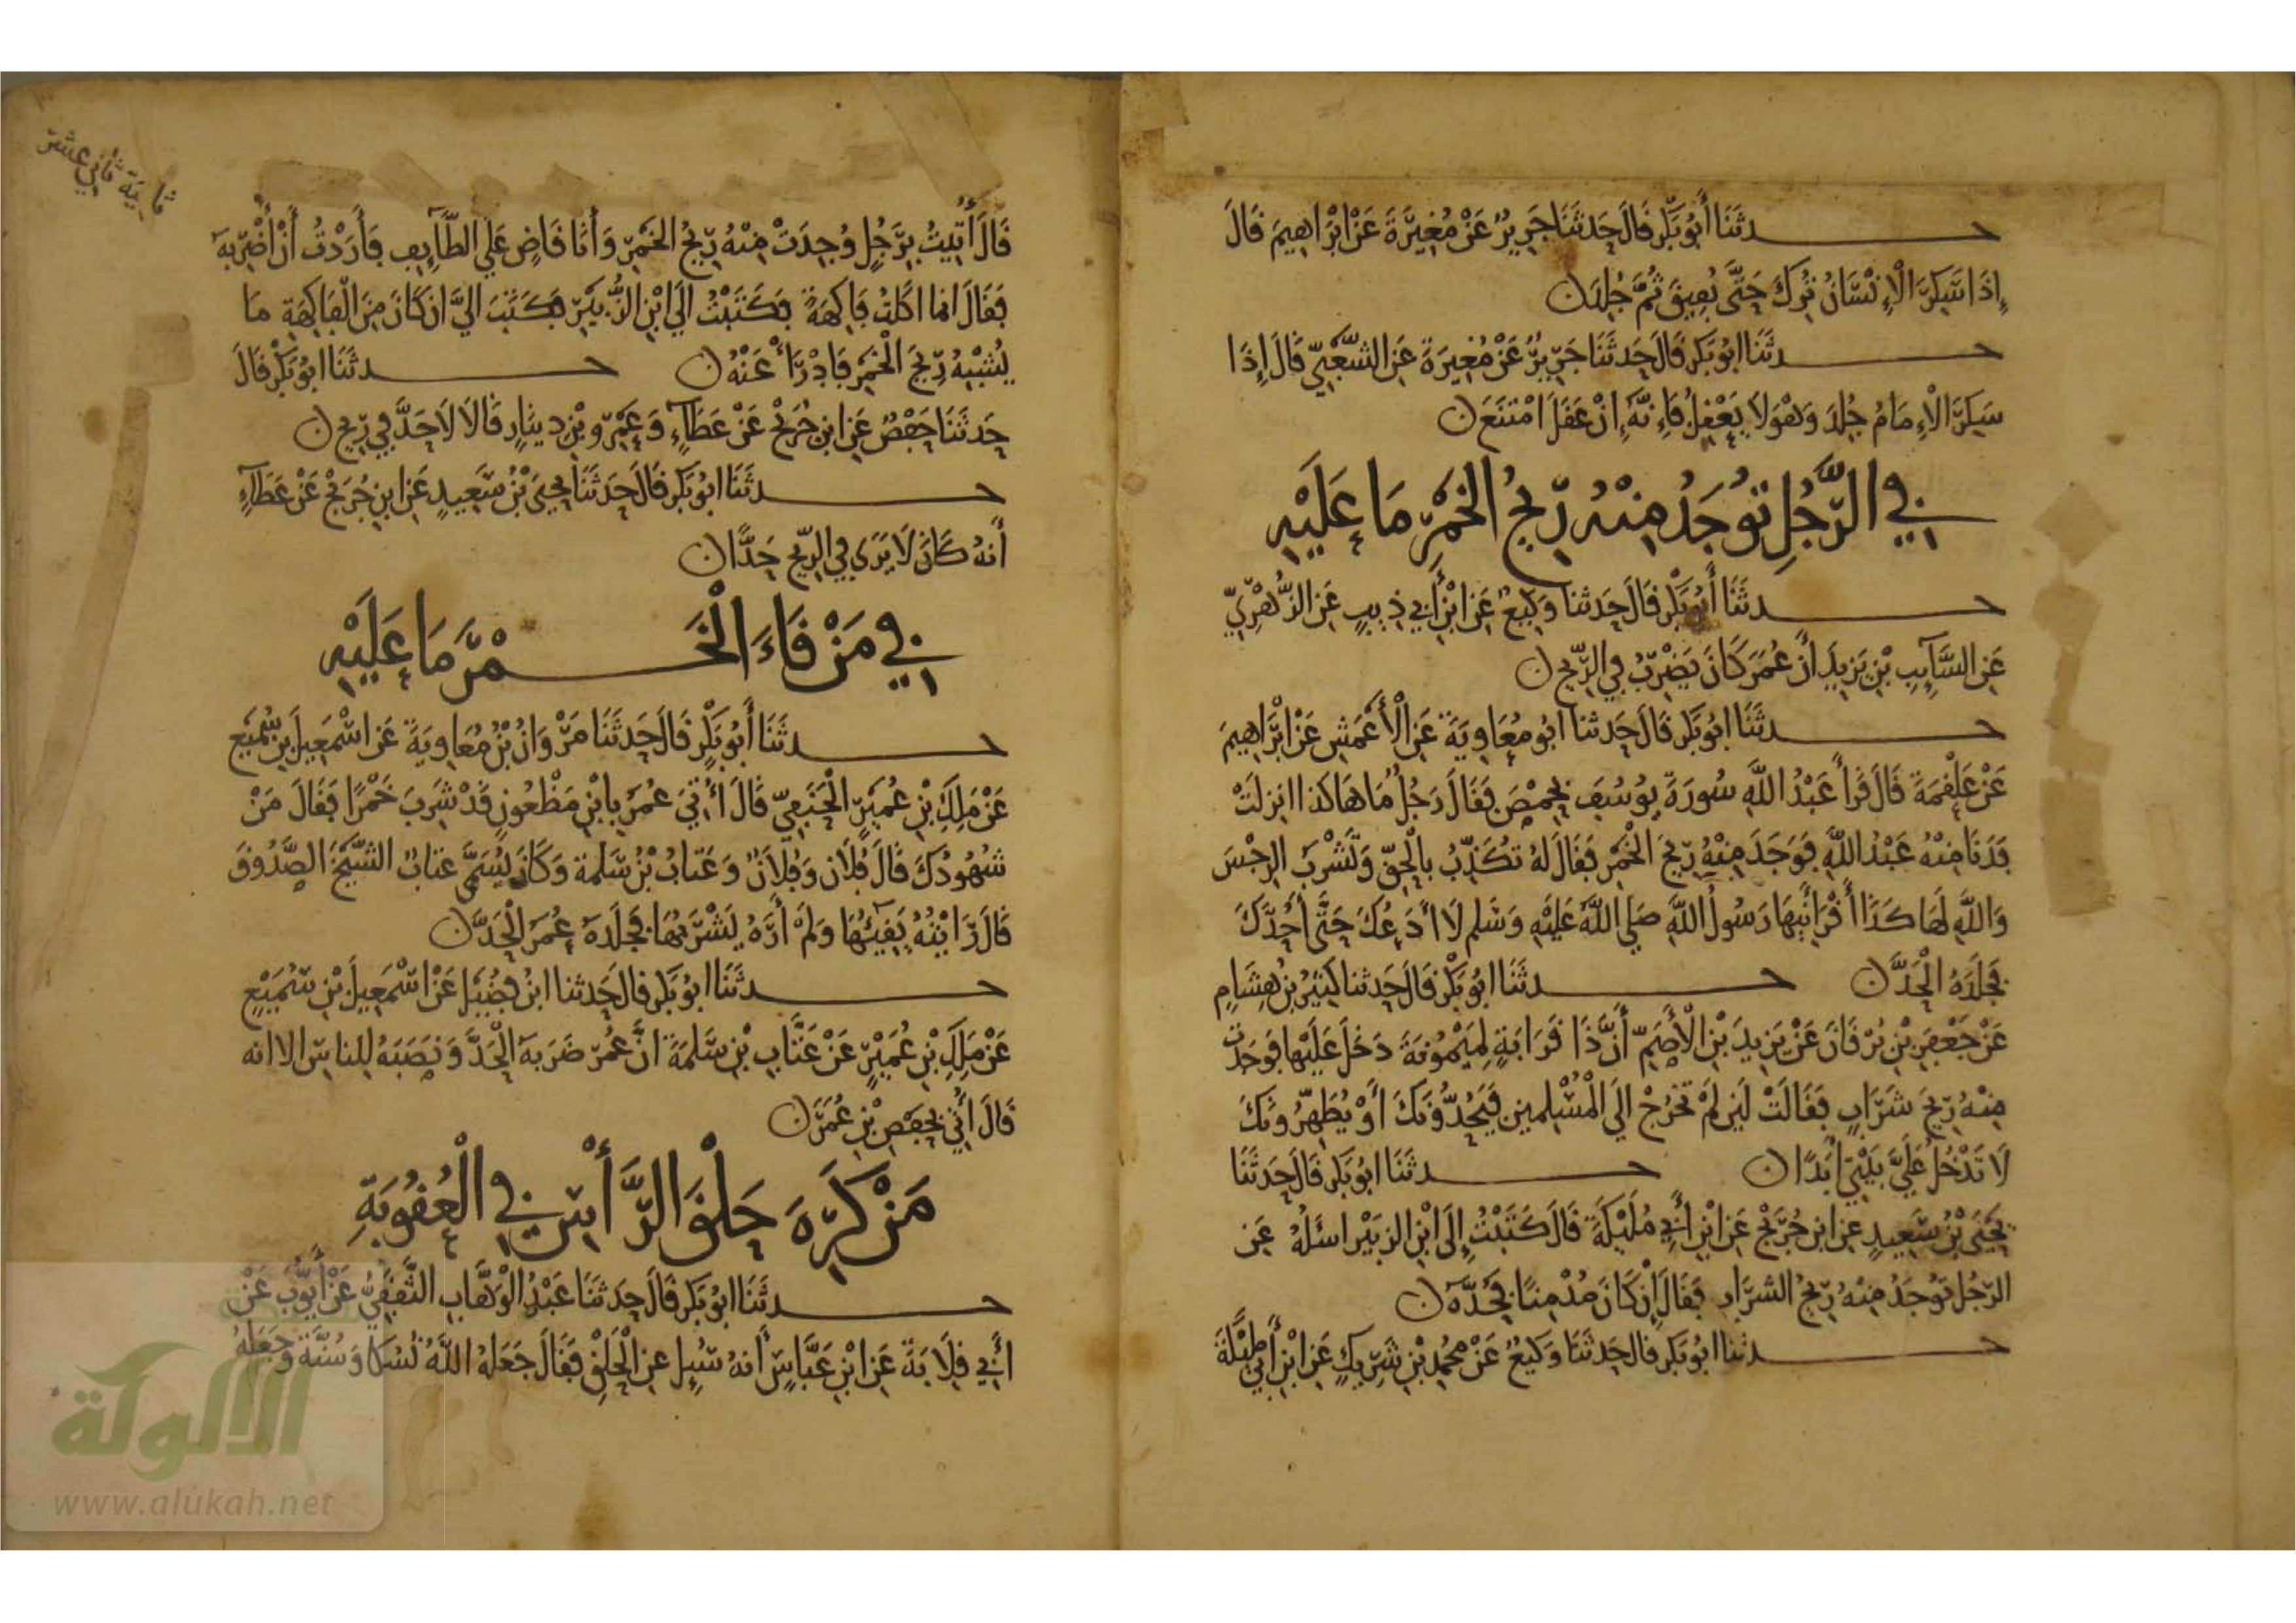 حدثنا أَبُو بَكْرٍ قَالَ حَدثَنَا جَرِيرٌ عَنْ مُغِيرَةَ عَنْ ابْرَاهِيمَ قَالَ
إِذَا سَكِرَ الْإِنْسَانُ تُرِكَ حَتَّى يُفِيقَ ثُمَّ جُلِدَ ن
حدثَنَا ابُو بَكْر قَالَ حَدثَنَا جَرِيرٌ عَنْ مُغِيرَةَ عَنِ الشَّعْبِيِّ قَالَ إِذَا
سَكِرَ الْإِمَامُ جُلِدَ وَهْوَ لا يَعْقِلُ فَإِنَّهُ إِنْ عَقَلَ امْتَنَعَ ن
فِي الرَّجُلِ تُوجَدُ مِنْهُ رِيحُ الخَمْرِ مَا عَلَيْهِ
حدثَنَا أَبُو بَكْرٍ قَالَ حَدثنا وَكِيعٌ عَنِ ابْنِ أَبِي ذِيبٍ عَنِ الزُّهْرِيِّ
عَنِ السَّآيِبِ بْنِ يَزِيدَ أَنَّ عُمَرَ كَانَ يَضْرِبُ فِي الرِّيحِ ن
حدثَنَا ابُو بَكْر قَالَ حَدثنا ابُو مُعَاوِيَةَ عَنِ الْأَعْمَشِ عَنْ ابْرَاهِيمَ
عَنْ عَلْقَمَةَ قَالَ قَرَأَ عَبْدُ اللَّهِ سُورَةَ يُوسُفَ بِحِمْصَ فَقَالَ رَجُلٌ مَا هَاكذا انزلَتْ
فَدَنَا مِنْهُ عَبْدُ اللَّهِ فَوَجَدَ مِنْهُ رِيحَ الْخَمْرِ فَقَالَ لَهُ تُكَذِّبُ بِالْحَقِّ وَتَشْرَبُ الرِجْسَ
وَاللَّهِ لَهَاكَذَا أَقْرَأَنِيهَا رَسُولُ اللَّهِ صَلى اللَّهُ عَلَيْهِ وَسَلم لَا أَدَعُكَ حَتَّى أَحُدَّكَ
فَجَلَدَهُ الْحَدَّ ن حدثَنَا ابُو بَكْرٍ قَالَ حَدثنا كَثِيرُ بْنُ هِشَامٍ
عَنْ جَعْفَرِ بْنِ بُرْقَانَ عَنْ يَزِيدَ بْنِ الْأَصَمِّ أَنَّ ذَا قَرَابَةٍ لِمَيْمُونَةَ دَخَلَ عَلَيْهَا فَوَجَدَت
مِنْهُ رِيحَ شَرَابٍ فَقَالَتْ لَيِن لَمْ تَخْرُجْ الَي الْمُسْلِمين فَيَحُدُّونَكَ أَوْ يُطَهِّرُونَكَ
لَا تَدْخُلْ عَلَيَّ بَيْتِي أَبَدًا ن حدثَنَا ابُو بَكْر قَالَ حَدثَنَا
يَحْيَى بْنُ سَعِيدٍ عن ابن جُرَيْجٍ عَنِ ابْنِ أَبِي مُلَيْكَةَ قَالَ كَتَبْتُ إِلَى ابْنِ الزبَيْرِ اسئَلُهُ عَن
الرَّجُل تُوجَدُ مِنْهُ رِيحُ الشَّرَابِ فَقَالَ إِنْ كَانَ مُدْمِنًا فَحُدَّهُ ن
حدثنا ابُو بَكْر قال حَدثَنَا وَكِيعٌ عَنْ مُحَمد بْنِ شَرِيكٍ عَنِ ابْنِ أَبِي مُلَيْكَةَ
ثانية ثاني عشر
قَالَ أُتِيتُ بِرَجُلٍ وُجِدَتْ مِنْهُ رِيحُ الخَمْرِ وَأَنَا قَاضٍ عَلَي الطَّآيِفِ فَأَرَدْتُ أَنْ أَضْرِبَهُ
فَقَالَ انما اكَلْتُ فَاكِهَةً فكَتَبْتُ الَي ابْنِ الزُّبَيْرِ فكَتَبَ اليَّ ان كَانَ مِنَ الْفَاكِهَةِ مَا
يُشْبِهُ رِيحَ الْخَمْرِ فَادْرَأْ عَنْهُ ن حدثَنَا ابُو بَكْر قَالَ
حَدثَنَا حَفْصٌ عَنِ ابن جُرَيْج عَنْ عَطَآءٍ وَعَمْرِو بْنِ دينارٍ قَالَا لَا حَدَّ فِي رِيحٍ ن
حدثَنَا ابُو بَكْر قَالَ حَدثَنَا يَحْيَى بْنُ سَعِيدٍ عَنِ ابْنِ جُرَيْجٍ عَنْ عَطَآءٍ
أَنهُ كَانَ لَا يَرَي فِي الرِّيحِ حَدًّا ن
فِي مَنْ قَاءَ الْخَمْرَ مَا عَلَيْهِ
حدثَنَا أَبُو بَكْرٍ قَالَ حَدثَنَا مَرْوَانُ بْنُ مُعَاوِيَةَ عَن اسْمَعِيلَ بْنِ سُمَيْعٍ
عَنْ مَلِكِ بْنِ عُمَيْرٍ الْحَنَفِيِّ قَالَ أُتِيَ عُمَرُ بِابْنِ مَظْعُونٍ قَدْ شَرِبَ خَمْرًا فَقَالَ مَنْ
شُهُودُكَ قَالَ فُلَان وَفُلَانٌ وَعَتابُ بْنُ سَلمة وَكَانَ يُسَمَّى عَتابٌ الشَّيْخَ الصَّدُوقَ
قَالَ رَايْتُهُ يَقِيئُهَا وَلَمْ أَرَهُ يَشْرَبُهَا فَجَلَدَهُ عُمَرُ الْحَدَّ ن
حدثَنَا ابُو بَكْر قال حَدثنا ابْنُ فُضَيْل عَنْ اسْمَعِيلَ بْنِ سُمَيْعٍ
عَنْ مَلِكِ بْنِ عُمَيْرٍ عَنْ عَتَّابِ بْنِ سَلَمَةَ انَّ عُمَرَ ضَرَبَهُ الْحَدَّ وَنَصَبَهُ لِلناسِ الا انه
قَالَ أُتِيَ بِحَفْصِ بْنِ عُمَرَ ن
مَنْ كَرِهَ حَلْقَ الرَّأْسِ فِي الْعُقُوبَةِ
حدثَنَا ابُو بَكْر قَالَ حَدثَنَا عَبْدُ الْوَهَّابِ الثَّقَفِيُّ عَنْ أَيُّوبَ عَنْ
أَبِي قِلَابَةَ عَنِ ابْنِ عَبَّاسٍ أَنهُ سُيِل عن الْحَلْقِ فَقَالَ جَعَلَهُ اللَّهُ نُسُكًا وَسُنَّةً وَجَعَلَهُ
الألوكة
www.alukah.net